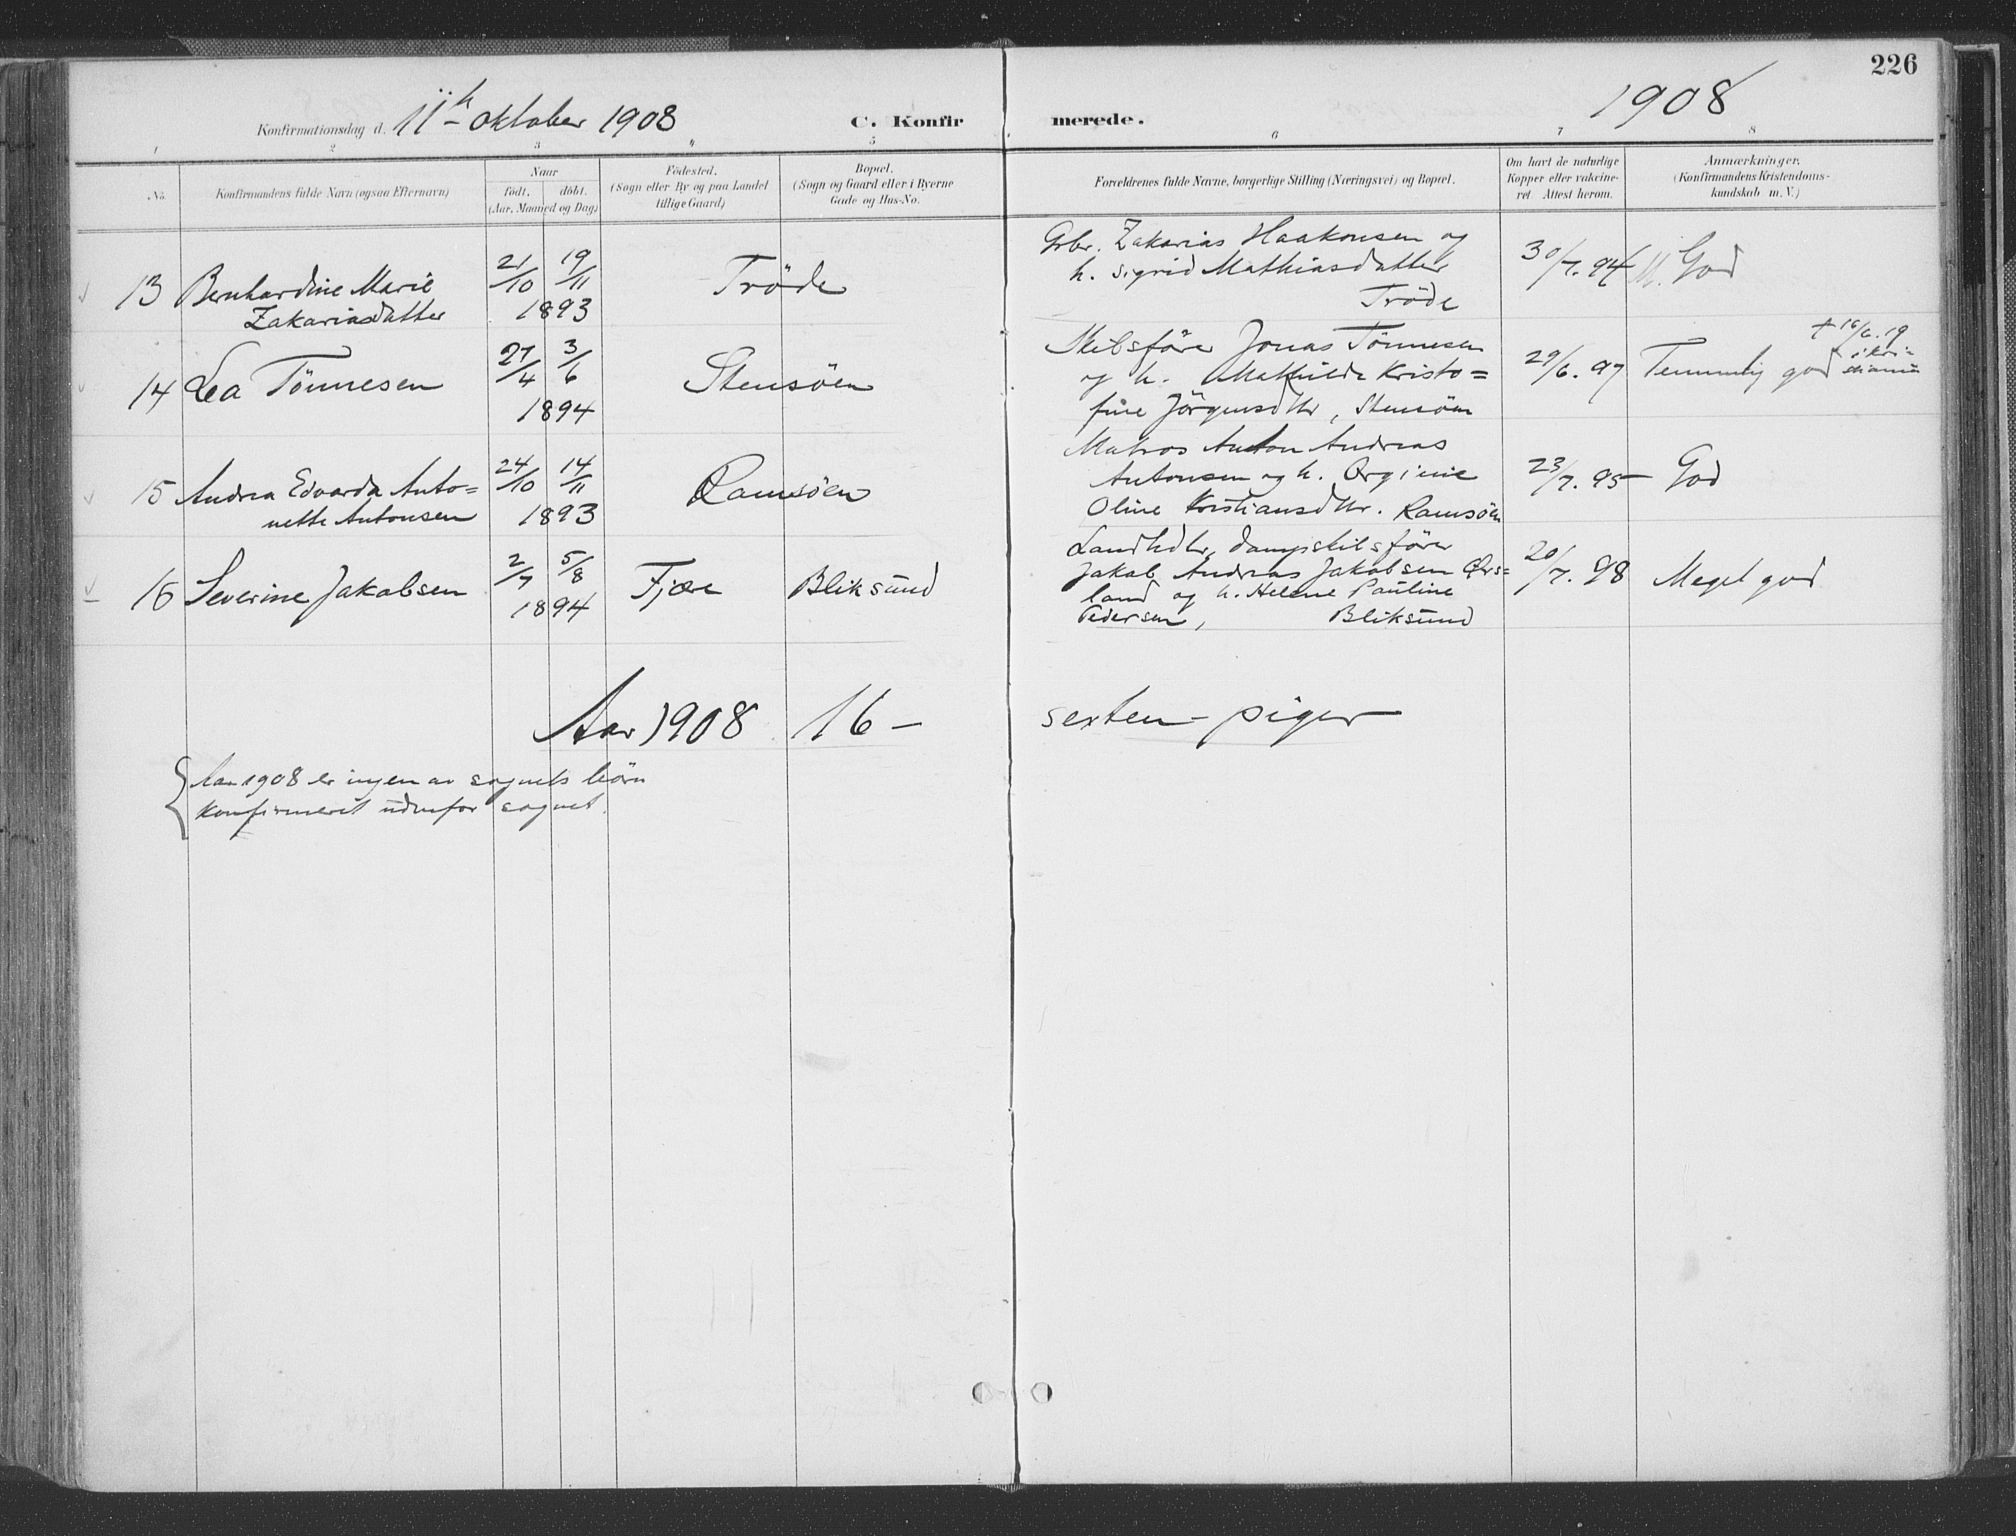 226
Konfirmationsdag d. 11th oktober 1908
C. Konfirmerede.
1908
1 2 3 4 5 6 7 8
No.
Konfirmandens fulde Navn (ogsaa Efternavn)
Naar
födt. döbt.
(Aar, Maaned og Dag)
Födested.
(Sogn eller By og paa Landet
tillige Gaard)
Bopæl.
(Sogn og Gaard eller i Byerne
Gade og Hus-No.
Forældrenes fulde Navne, borgerlige Stilling (Næringsvei) og Bopæl.
Om havt de naturlige
Kopper eller vakcine-
ret Attest herom.
Anmærkninger.
(Konfirmandens Kristendoms-
kundskab m. V.)
13 Bernhardine Marie
Zakariasdatter
21/10 19/11
1893
Tröde
Grbr. Zakarias Haakonsen og
h. Sigrid Mathiasdatter
Tröde
30/7. 94
M. God
14 Lea Tönnesen
27/4 3/6
1894
Stensöen
Skibsförer Jonas Tönnesen
og h. Mathilde Kristo=
fine Jörgensdtr, Stensöen
29/6. 97
Temmelig god
† 16/6.19
i Kri-
stiania
15 Andrea Edvarda Anto=
nette Antonsen
24/10 14/11
1893
Ramsöen
Matros Anton Andreas
Antonsen og h. Orginie
Oline Kristiansdtr. Ramsöen
23/7. 95
God
16 Severine Jakobsen
2/7 5/8
1894
Fjære
Bliksund
Landhdlr, dampskibsförer
Jakob Andreas Jakobsen Ørs=
land og h. Helene Pauline
Pedersen, Bliksund
20/7. 98
Meget god
Aar 1908 16 – sexten – piger
Aar 1908 er ingen av sognets börn
konfirmeret udenfor sognet.